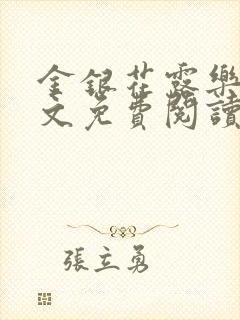 金銀花露樂
文免費閱讀
張立勇